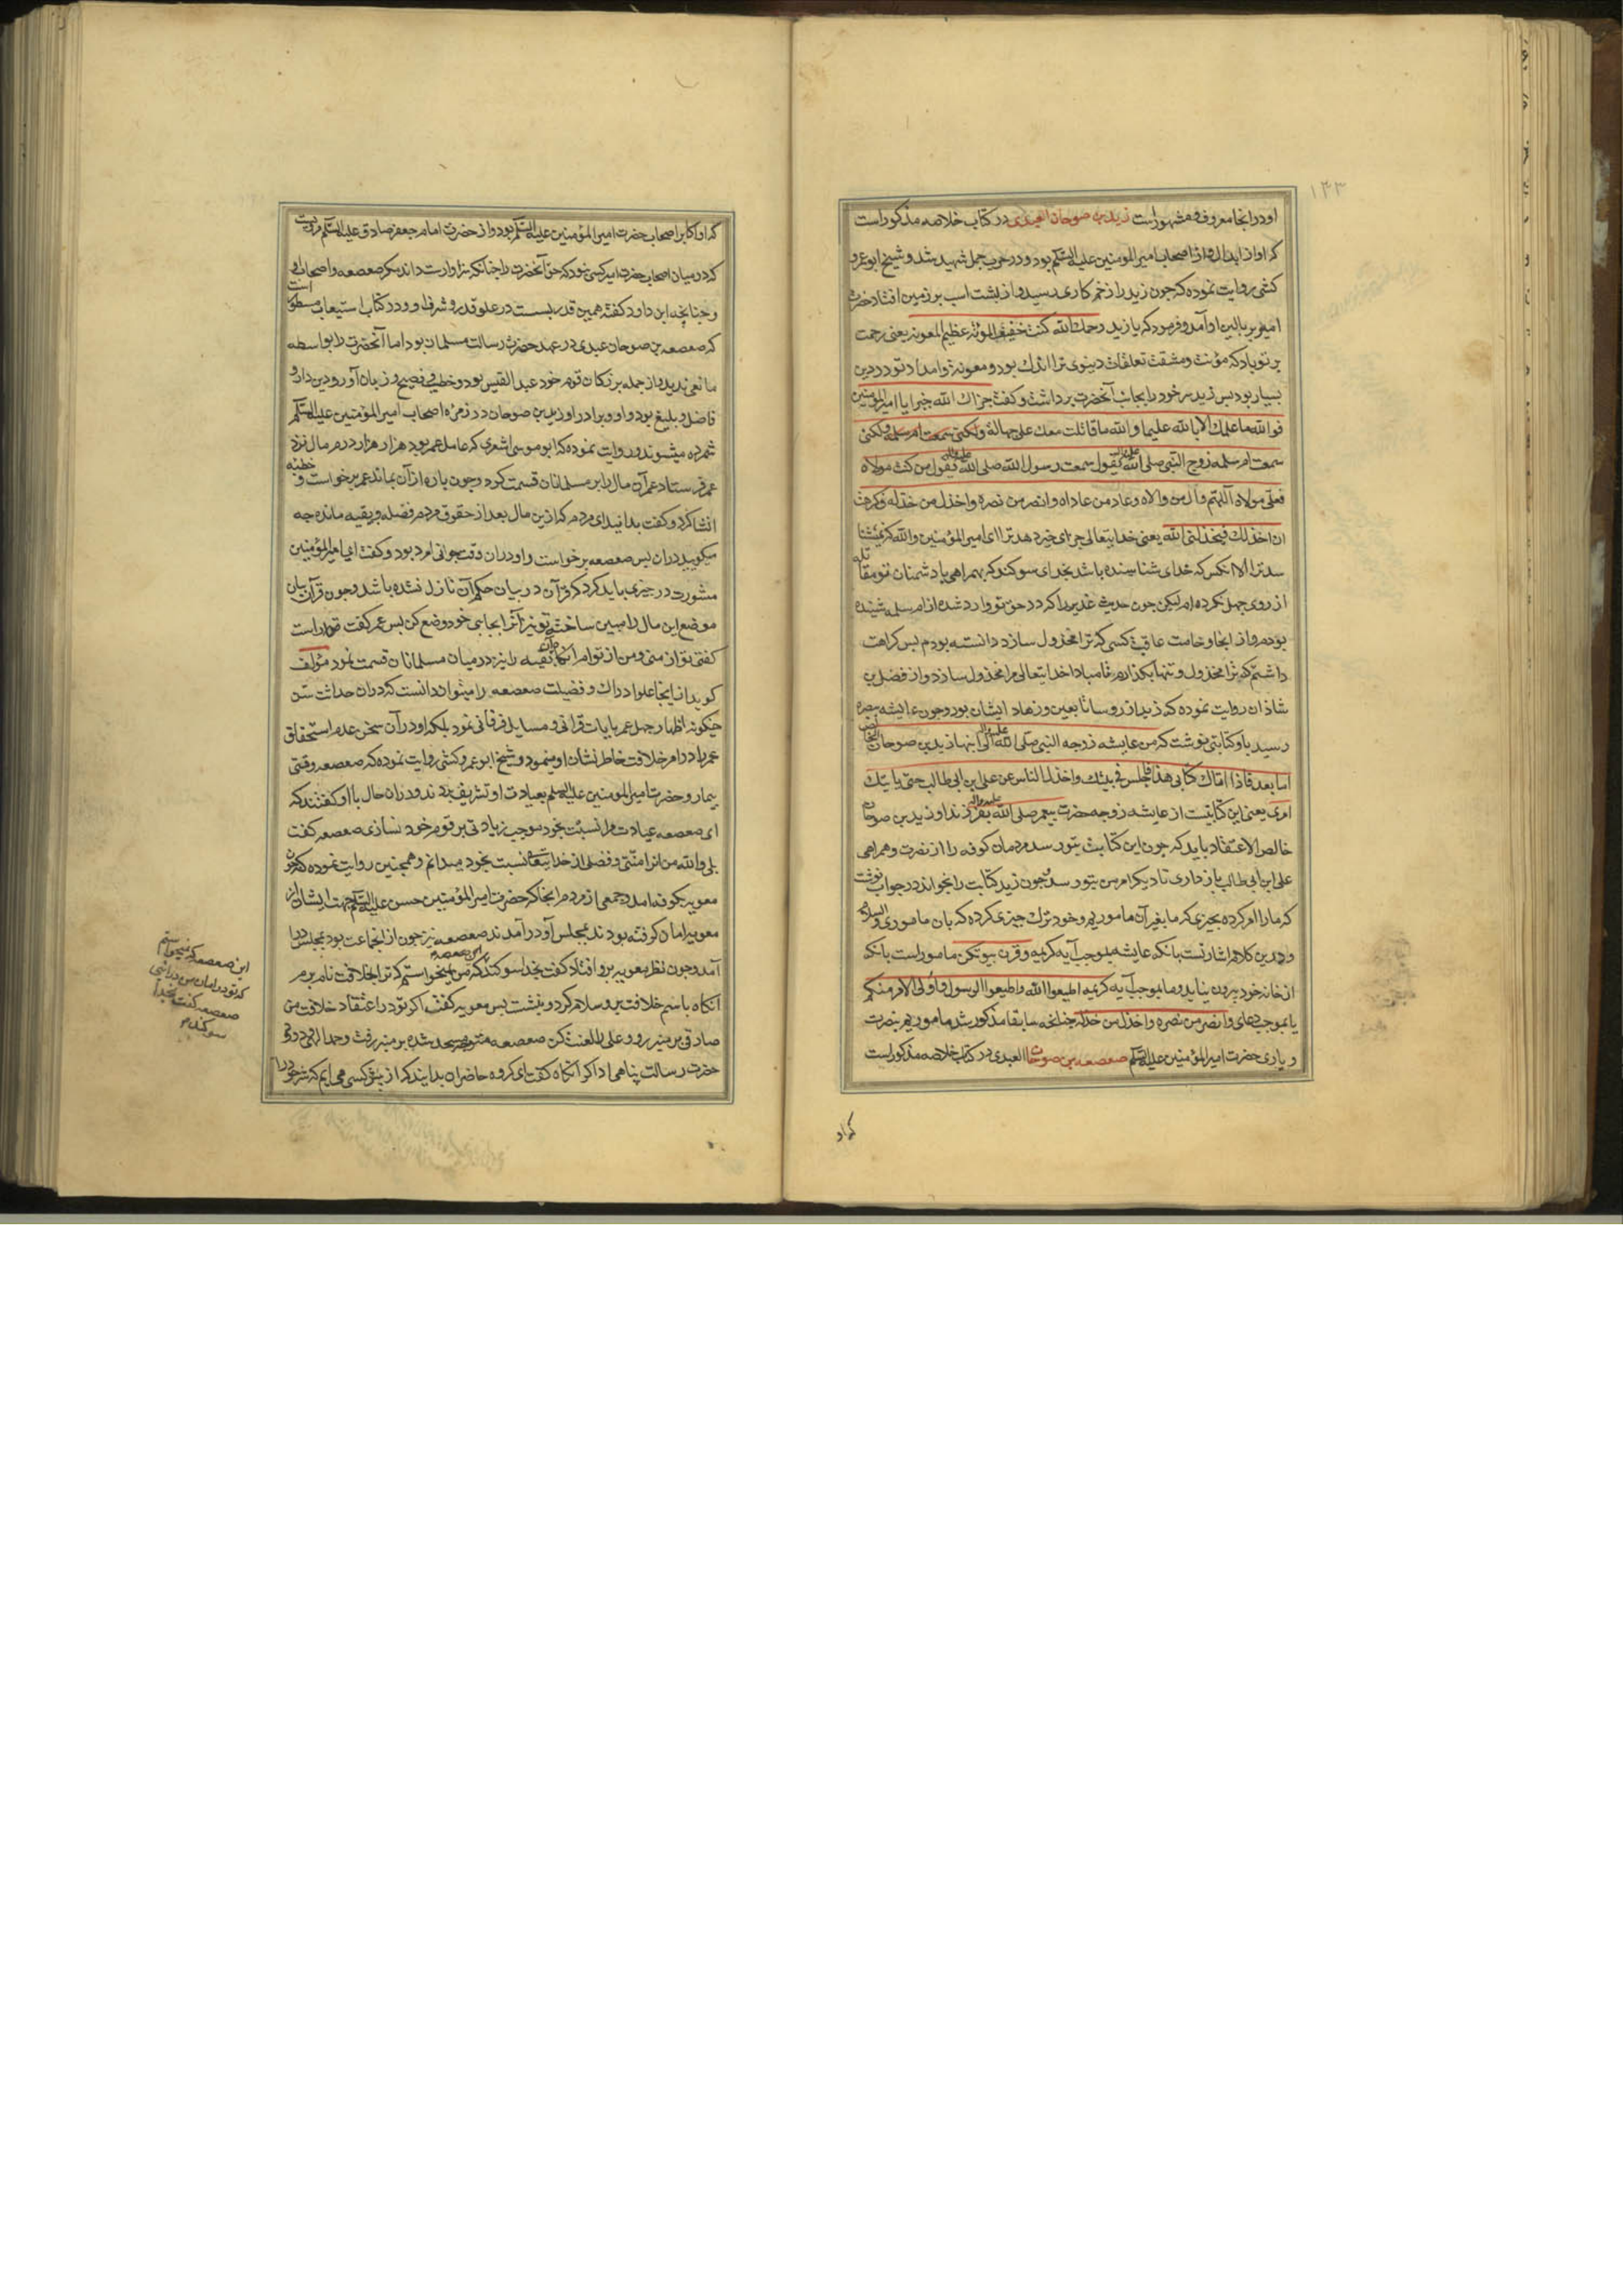 ۱۲۳
او در انجا معروف و مشهور است زید بن صوحان العبدی در کتاب خلاصه مذکور است
که او از ابدال و از اصحاب امیر المؤمنین علیه السلم بود و در حرب جمل شهید شد و شیخ ابو عمرو
کشی روایت نموده که جون زید را زخم کاری رسید و از پشت اسب بر زمین افتاد حضرت
امیر بر بالین او آمد و فرمود که یا زید رحمك الله کنت خفیف المؤنه عظیم المعونه یعنی رحمت
بر تو باد که مؤنت و مشقت تعلقات دینوی ترا اندك بود و معونة و امداد تو در دین
بسیار بود بس زید سر خود را بجانب آنحضرت برداشت و کفت جزاك الله خیرا یا امیر المؤمنین
فوالله ما علمك الا بالله علیما والله ما قاتلت معك علی جهالة ولکنی سمعت ام سلمه ولکنی
سمعت ام سلمه زوج النبی صلی الله علیه واله تقول سمعت رسول الله صلی الله علیه واله یقول من کنت مولاه
فعلی مولاه اللهم وال من والاه وعاد من عاداه وانصر من نصره واخذل من خذله فکرهت
ان اخذلك فیخذلنی الله یعنی خدایتعالی جزای خیر دهد ترا ای امیر المؤمنین والله که نمیشنا
سد ترا الا انکس که خدای شناسنده باشد بخدای سوکند که بهمراهی با دشمنان تو مقاتله
از روی جهل نکرده ام لیکن جون حدیث غدیر را که در حق تو وارد شده از ام سلمه شنیده
بودم و از انجا وخامت عاقبت کسی که ترا مخذول سازد دانسته بودم بس کراهت
داشتم که ترا مخذول و تنها بکذارم تا مبادا خدایتعالی مرا مخذول سازد و از فضل بن
شاذان روایت نموده که زید از روسا تابعین و زهاد ایشان بود و جون عایشه ببصره
رسید باو کتابتی نوشت که من عایشه زوجه النبی صلی الله علیه واله الی ابنها زید بن صوحان الخالص
اما بعد فاذا اتاك کتابی هذا فاجلس فی بیتك واخذل الناس عن علی ابن ابی طالب حتی یاتیك
امری یعنی این کتابتیست از عایشه زوجه حضرت پیغمبر صلی الله علیه واله بفرزند او زید بن صوحان
خالص الاعتقاد باید که جون این کتابت بتو رسد مردمان کوفه را از نصرت و همراهی
علی ابن ابی طالب باز داری تا دیکر امر من بتو رسد جون زید کتابت را بخواند در جواب نوشت
که ما را امر کرده بجیزی که ما بغیر آن ماموریم و خود ترك جیزی کرده که بان ماموری والسلام
و درین کلام اشارتست بانکه عایشه بموجب آیه کریمه وقرن فی بیوتکن مامور است بانکه
از خانه خود بیرون نیاید و ما بموجب آیه کریمه اطیعوا الله واطیعوا الرسول واولی الامر منکم
یا بموجب دعای وانصر من نصره واخذل من خذله جنانجه سابقا مذکور شد ماموریم بنصرت
و یاری حضرت امیر المؤمنین علیه السلم صعصعه بن صوحان العبدی در کتاب خلاصه مذکور است
که او
که او اکابر اصحاب حضرت امیر المؤمنین علیه السلم بود و از حضرت امام جعفر صادق علیه السلم مرویست
که در میان اصحاب حضرت امیر کسی نبود که حق آنحضرت را جنانکه سزاوارست داند مکر صعصعه و اصحاب او
و جنانجه ابن داود کفته همین قدر بسست در علو قدر و شرف او و در کتاب استیعاب مسطور است
که صعصعه بن صوحان عبدی در عهد حضرت رسالت مسلمان بود اما آنحضرت را بواسطه
مانعی ندید و از جمله بزرکان قوم خود عبد القیس بود و خطیبی فصیح و زبان آور و دین دار و
فاضل و بلیغ بود و او و برادر او زید بن صوحان در زمره اصحاب امیر المؤمنین علیه السلم
شمرده میشوند و روایت نموده که ابو موسی اشعری که عامل عمر بود هزار هزار درم مال نزد
عمر فرستاد عمر آن مال را بر مسلمانان قسمت کرد و جون پاره از آن بماند عمر برخواست و خطبه
انشا کرد و کفت بدانید ای مردم که ازین مال بعد از حقوق مردم فضله و بقیه مانده جه
میکویید در آن بس صعصعه برخواست و او در ان وقت جوانی امرد بود و کفت ای امیر المؤمنین
مشورت در جیزی باید کرد که قرآن در بیان حکم آن نازل نشده باشد و جون قرآن بیان
موضع این مال را مبین ساخته تو نیز آنرا بجای خود وضع کن بس عمر کفت تو راست
کفتی تو از منی و من از تو ام انکاه ان بقیه را نیز در میان مسلمانان قسمت نمود مؤلف
کوید از اینجا علو ادراك و فضیلت صعصعه را میتوان دانست که در ان حداثت سن
جکونه اظهار جهل عمر بایات قرانی و مسایل فرقانی نمود بلکه او در آن سخن عدم استحقاق
عمر را در امر خلافت خاطر نشان او مینمود و شیخ ابو عمرو کشی روایت نموده که صعصعه وقتی
بیمار و حضرت امیر المومنین علیه السلم بعیادت او تشریف بردند و در ان حال با او کفتند که
ای صعصعه عیادت مرا نسبت بخود موجب زیادتی بر قوم خود نسازی صعصعه کفت
بلی والله من انرا منتی و فضلی از خدایتعالی نسبت بخود میدانم و همجنین روایت نموده که جون
معویه بکوفه امد و جمعی از مردم انجا که حضرت امیر المؤمنین حسن علیه السلم جهت ایشان از
معویه امان کرفته بودند بمجلس او در آمدند صعصعه نیز جون از انجماعت بود بمجلس در
آمد و جون نظر معویه برو افتاد کفت بخدا سوکند که من نمیخواستم که ترا بخلافت نام برم
آنکاه باسم خلافت برو سلام کرد و بنشست بس معویه کفت اکر تو در اعتقاد خلافت من
صادقی بر منبر رو و علی را لعنت کن صعصعه متوجه مسجد شده بر منبر رفت و حمد الهی و درود
حضرت رسالت پناهی ادا کرد آنکاه کفت ای کروه حاضران بدانید که از پیش کسی می ایم که شر خود را
این صعصعه که نمیخواستم
که تو در امان من در ائی
صعصعه کفت بخدا
سوکند که